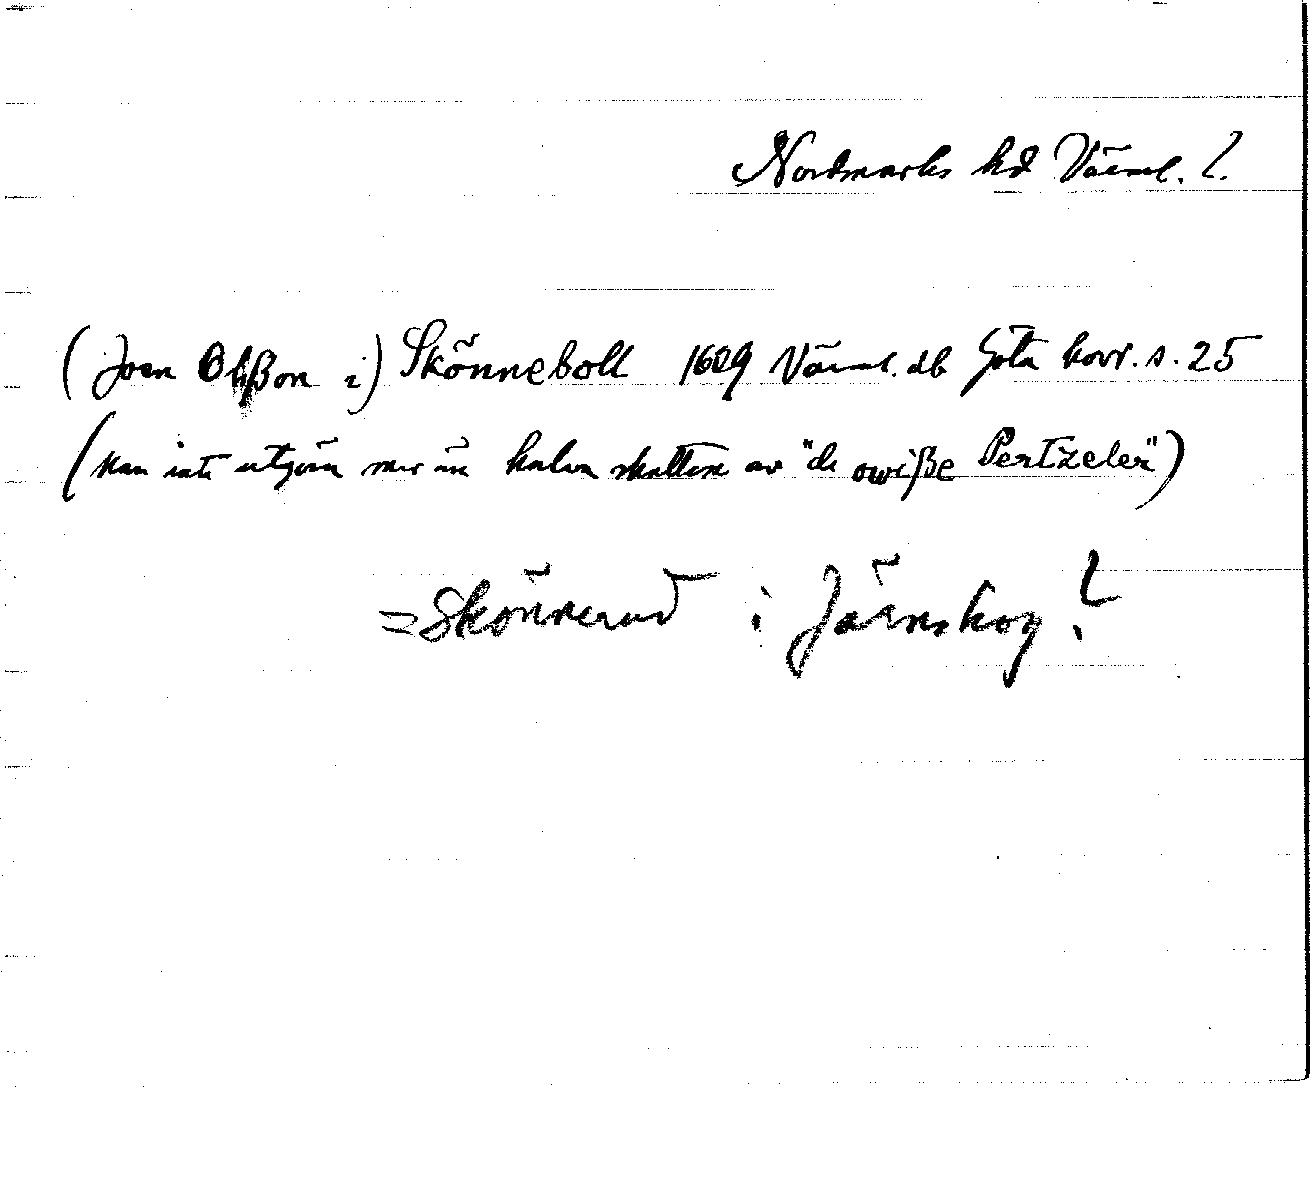 Nordmarks hd Värml. ?
(Joen Olßon i) Skönneboll 1609 Värml. db Göta hovr. s. 25
(kan inte utgöra mer än halva skatten av "de owiße Pertzeler")
= Skönnerud i Järnskog ?